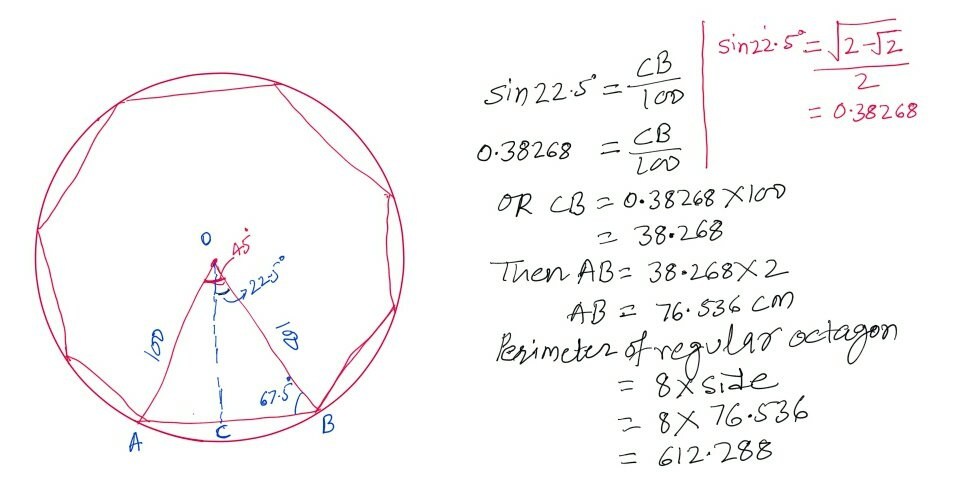 O
45°
22.5°
100
100
67.5°
A
C
B
sin 22.5° = CB/100
0.38268 = CB/100
OR CB = 0.38268 × 100
= 38.268
Then AB = 38.268 × 2
AB = 76.536 cm
Perimeter of regular octagon
= 8 × side
= 8 × 76.536
= 612.288
sin 22.5° = √(2-√2)/2
= 0.38268